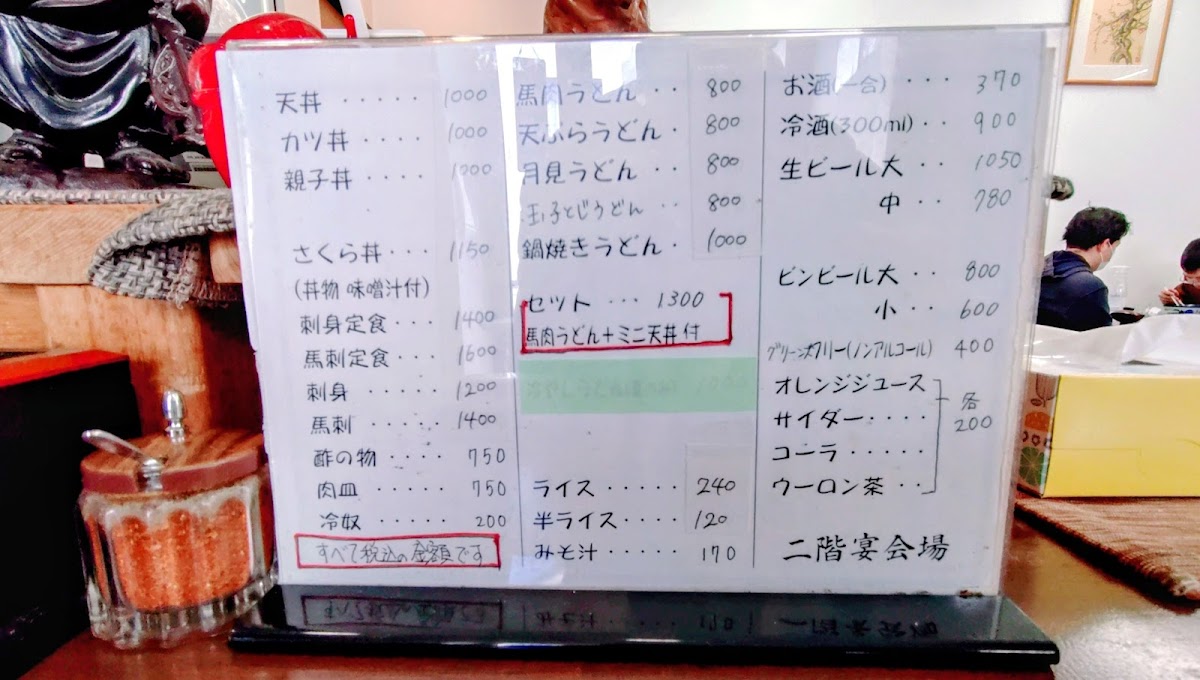 天丼 ····· 1000
カツ丼 ···· 1000
親子丼 ···· 1000
さくら丼 ··· 1150
(丼物 味噌汁付)
刺身定食 ··· 1400
馬刺定食 ··· 1600
刺身 ····· 1200
馬刺 ····· 1400
酢の物 ···· 750
肉皿 ····· 750
冷奴 ····· 200
すべて税込の金額です
馬肉うどん ·· 800
天ぷらうどん · 800
月見うどん ·· 800
玉子とじうどん ·· 800
鍋焼きうどん · 1000
セット ··· 1300
馬肉うどん+ミニ天丼付
ライス ···· 240
半ライス ···· 120
みそ汁 ····· 170
お酒(一合) ··· 370
冷酒(300ml) ·· 900
生ビール大 ·· 1050
中 ·· 780
ビンビール大 ·· 800
小 ·· 600
グリーンズフリー(ノンアルコール) 400
オレンジジュース
サイダー ····
コーラ ·····
ウーロン茶 ··
各
200
二階宴会場